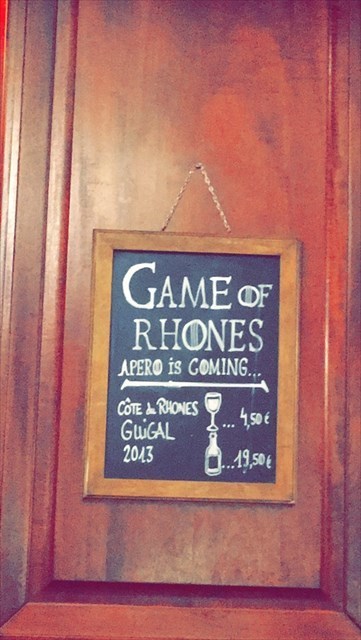 GAME OF
RHONES
APERO iS COMING...
CÔTE du RHONES
GUIGAL
2013
... 4,50€
...19,50€